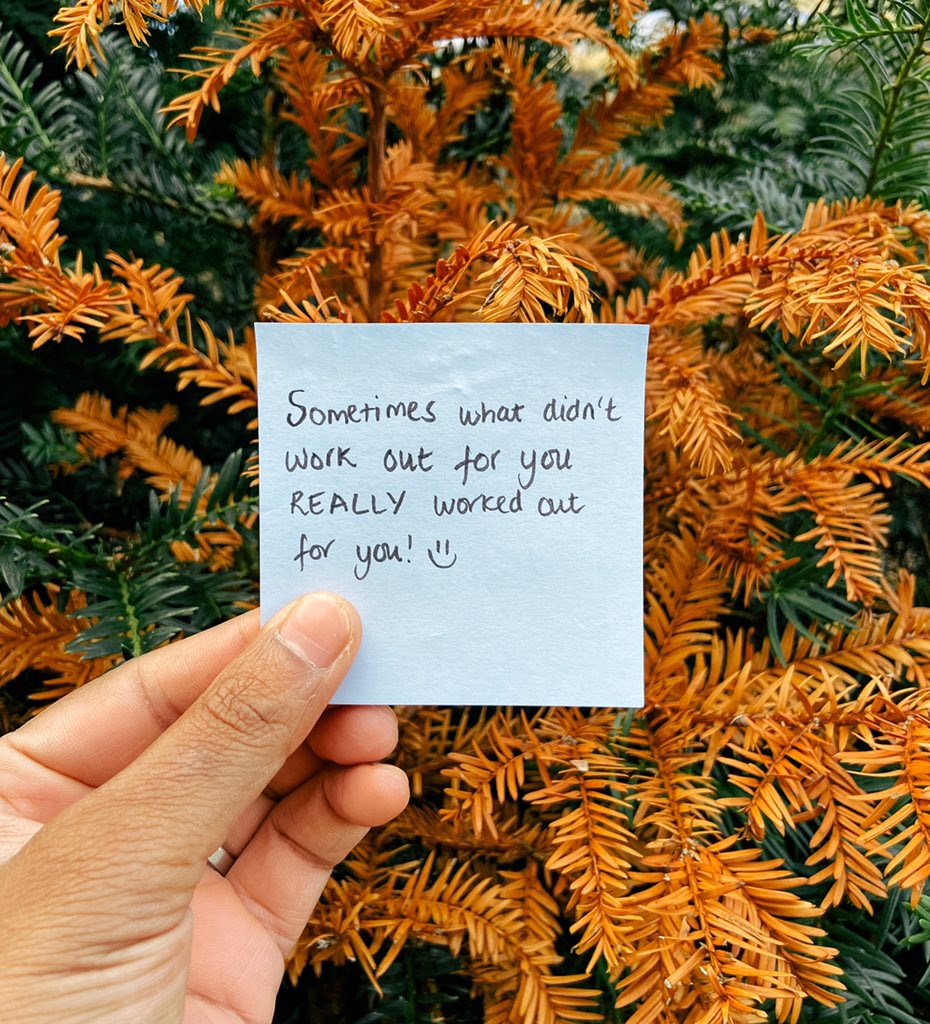 Sometimes what didn't
work out for you
REALLY worked out
for you! :)